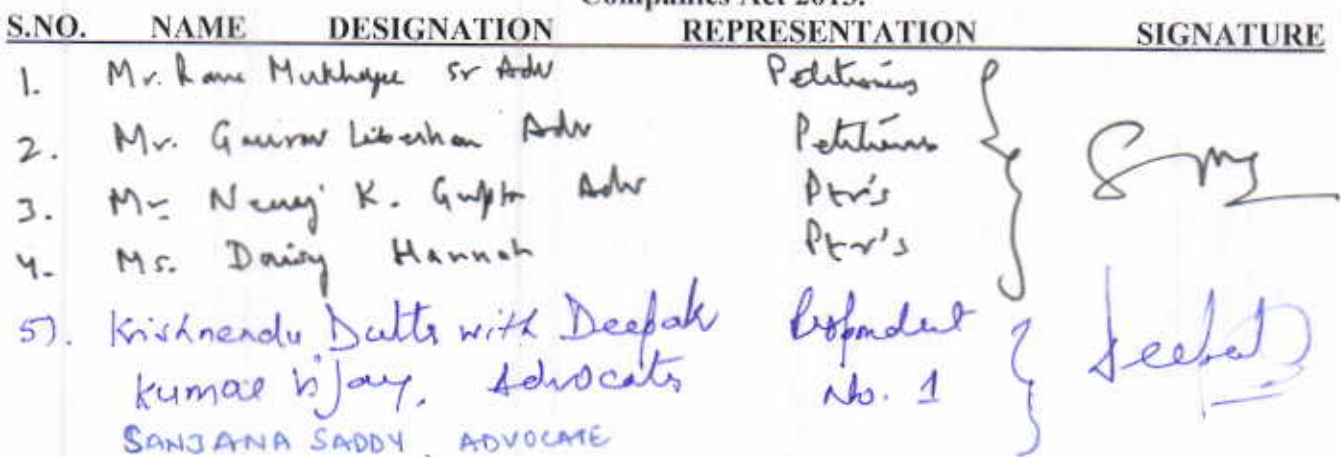 Companies Act 2013.
S.NO. NAME DESIGNATION REPRESENTATION SIGNATURE
1. Mr. Rana Mukherjee Sr Adv Petitioners
2. Mr. Gaurav Liberhan Adv Petitioners
3. Mr. Neeraj K. Gupta Adv Ptr's
4. Ms. Daisy Hannah Ptr's
5). Krishnendu Dutta with Deepak Respondent
Kumar Vijay, Advocates No. 1
SANJANA SADDY, ADVOCATE